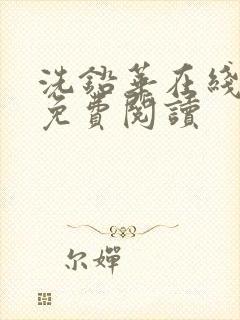 洗鉛華在綫
免費閱讀
尔嬋